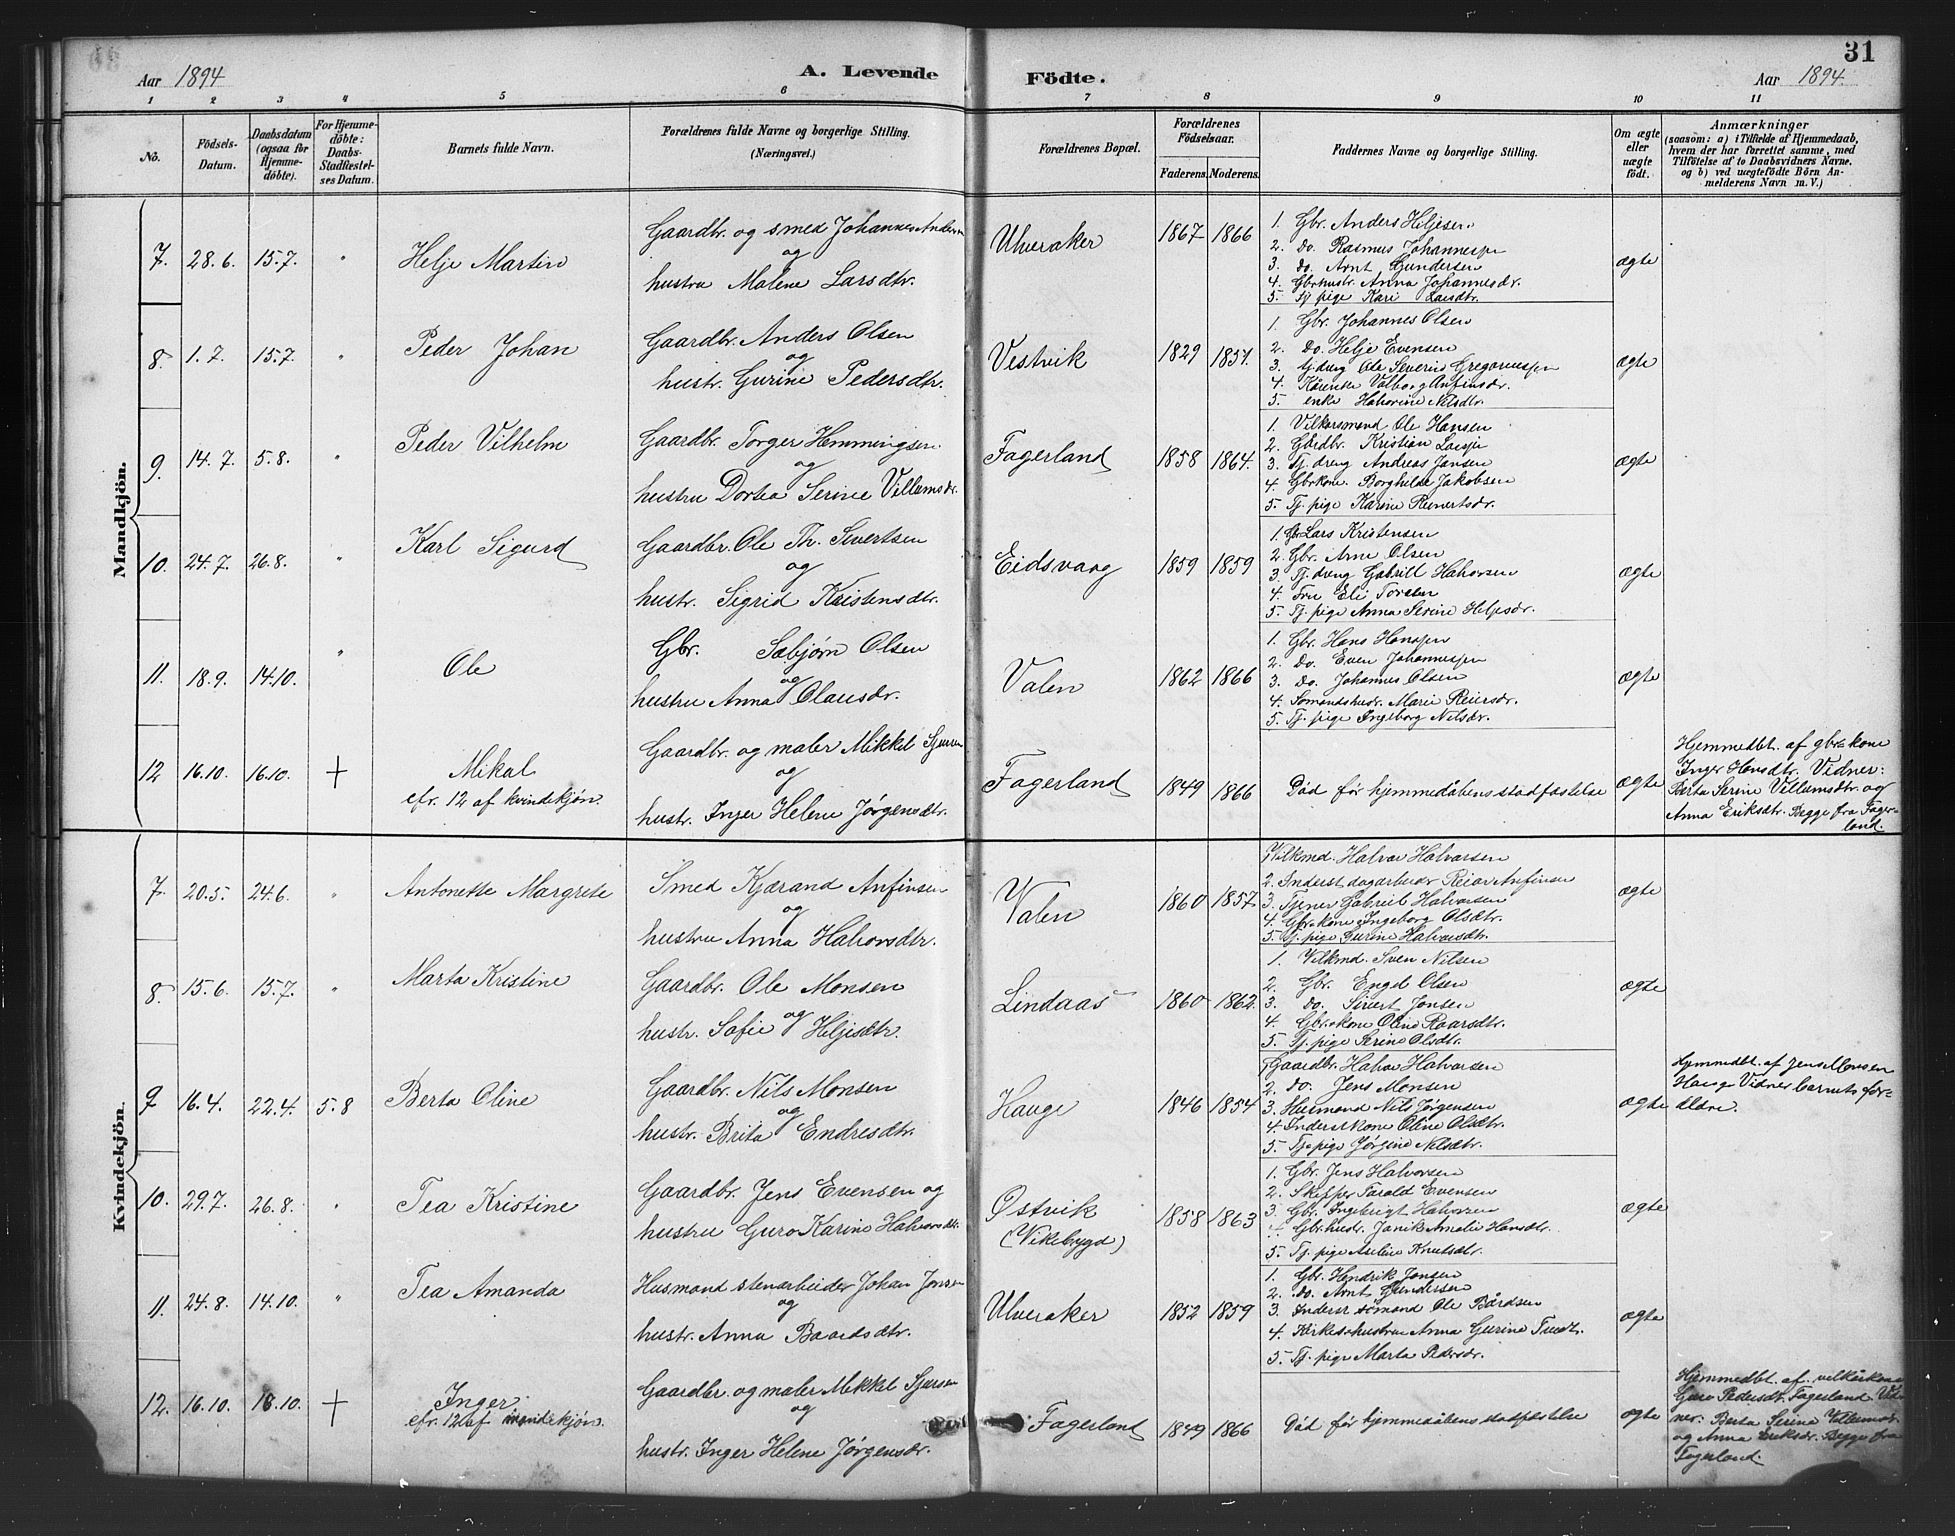 31
Aar 1894
A. Levende Födte.
Aar 1894.
1 2 3 4 5 6 7 8 9 10 11
No.
Födsels-
Datum.
Daabsdatum
(ogsaa for
Hjemme-
döbte).
For Hjemme-
döbte:
Daabs-
Stadfæstel-
ses Datum.
Barnets fulde Navn.
Forældrenes fulde Navne og borgerlige Stilling.
(Næringsvei.)
Forældrenes Bopæl.
Forældrenes
Födselsaar.
Faderens. Moderens.
Faddernes Navne og borgerlige Stilling.
Om ægte
eller
uægte
født.
Anmærkninger
(saasom: a) i Tilfælde af Hjemmedaab,
hvem der har forrettet samme, med
Tilföielse af to Daabsvidners Navne,
og b) ved uægtefödte Börn An-
melderens Navn m. V.)
Mandkjön.
7. 28.6. 15.7. " Helje Martin
Gaardbr. og smed Johannes Andersen
og
hustru Malene Larsdtr.
Ulveraker 1867 1866
1. Gbr. Anders Heljesen
2. do. Rasmus Johannessen
3. do. Arnt Gundersen
4. Gbrhustr. Anna Johannesdr.
5. Tj. pige Kari Larsdtr.
ægte
8. 1.7. 15.7. " Peder Johan
Gaardbr. Anders Olsen
og
hustr. Gurine Pedersdtr.
Vestvik 1829 1851.
1. Gbr. Johannes Olsen
2. Do. Helje Evensen
3. Ole Severin Gregoriussen
4. Valborg Anfinsdr.
5. enke Halvorine Nilsdtr.
ægte
9. 14.7. 5.8. " Peder Vilhelm
Gaardbr. Torger Hemmingsen
og
hustru Dortea Serine Villumsdr.
Fagerland 1858 1864.
1. Vilkorsmand Ole Hansen
2. Gårdbr. Kristian
3. Tj. dreng Andreas Jansen
4. Gbrkone Borghilde Jakobsen
5. Tj. pige Karine Reinertsdr.
ægte
10. 24.7. 26.8. " Karl Sigurd
Gaardbr. Ole Th. Sivertsen
og
hustr. Sigrid Kristensdtr.
Eidsvaag 1859 1859
1. Gbr Lars Kristensen
2. Gbr. Arne Olsen
3. Tj. dreng Gabriel Halvorsen
4. Fru Eli Torsen
5. Tj. pige Anna Serine Heljesdr.
ægte
11. 18.9. 14.10. " Ole
Gbr. Sæbjørn Olsen
og
hustru Anna Olausdr.
Valen 1862 1866
1. Gbr. Hans Hanssen
2. Do. Even Johannessen
3. Do. Johannes Olsen
4. Sømandshustr. Marie Reiersdr.
5. Tj. pige Ingeborg Nilsdr.
ægte
12 16.10. 16.10. + Mikal
cfr. 12 af kvindekjøn.
Gaardbr. og maler Mikkel Sjursen
og
hustr. Inger Helene Jørgensdtr.
Fagerland 1849 1866
Død før hjemmedåbens stadfæstelse
ægte
Hjemmedbt. af gbr=kone
Inger Hansdtr. Vidner:
Berta Serine Villumsdtr. og
Anna Eriksdtr. Begge fra Fager-
land.
Kvindekjön.
7. 20.5. 24.6. " Antonette Margrete
Smed Kjærand Anfinsen
og
hustru Anna Halvorsdtr.
Valen 1860 1857.
1. Vilkmd. Halvor Halvorsen
2. Inderst dagarbeider Reiar Anfinsen
3. Tjener Gabriel Halvorsen
4. Gbr.kone Ingeborg Olsdtr.
5. Tj. pige Gurine Halvorsdtr.
ægte
8. 15.6. 15.7. " Marta Kristine
Gaardbr. Ole Monsen
og
hustr. Sofie Heljesdtr.
Lindaas 1860 1862.
1. Vilkmd. Sven Nilsen
2. Gbr. Engel Olsen
3. Do. Sivert Jonsen
4. Gbr.kone Oline Roarsdtr.
5. Tj. pige Serine Olsdtr.
ægte
9 16.4. 22.4. 5.8 Berta Oline
Gaardbr. Nils Monsen
og
hustr. Brita Endresdtr.
Hauge 1846 1854
1. Gaardbr. Halvor Halvorsen
2. Do. Jens Monsen
3. Husmand Nils Jørgensen
4. Inderstkone Oline Olsdtr.
5. Tj. pige Jørgine Nilsdtr.
ægte
Hjemmedbt. af Jens Monsen
Hauge Vidner barnets for=
ældre.
10. 29.7. 26.8. " Tea Kristine
Gaardbr. Jens Evensen og
hustru Guro Karine Halvorsdtr.
Østvik
(Vikebygd)
1858 1863
1. Gbr. Jens Halvorsen
2. Skipper Tarald Evensen
3. Gbr. Ingebrigt Halvorsen
4. Gbr.hustr. Janik Amalie Hansdtr.
5. Tj. pige Aseline Knutsdtr.
ægte
11. 24.8. 14.10. " Tea Amanda
Husmand stenarbeider Johan Jonsen
og
hustr. Anna Baardsdtr.
Ulveraker 1852 1859
1. Gbr. Hendrik Jonsen
2. Do. Arnt Gundersen
3. Inderst sømand Ole Bårdsen
4. Anna Gurine
5. Tj. pige Marta Pedersdr.
ægte
12. 16.10. 16.10 + Inger
cfr. 12 af mandekjøn.
Gaardbr. og maler Mikkel Sjursen
og
hustr. Inger Helene Jørgensdr.
Fagerland 1849 1866
Død før hjemmedåbens stadfæstelse
ægte
Hjemmedbt. af vilkårkone
Guro Pedersdt. Fagerland. Vid-
ner: Berta Serine Villumsdr.
og Anna Eriksdr. Begge fra
Fagerland.